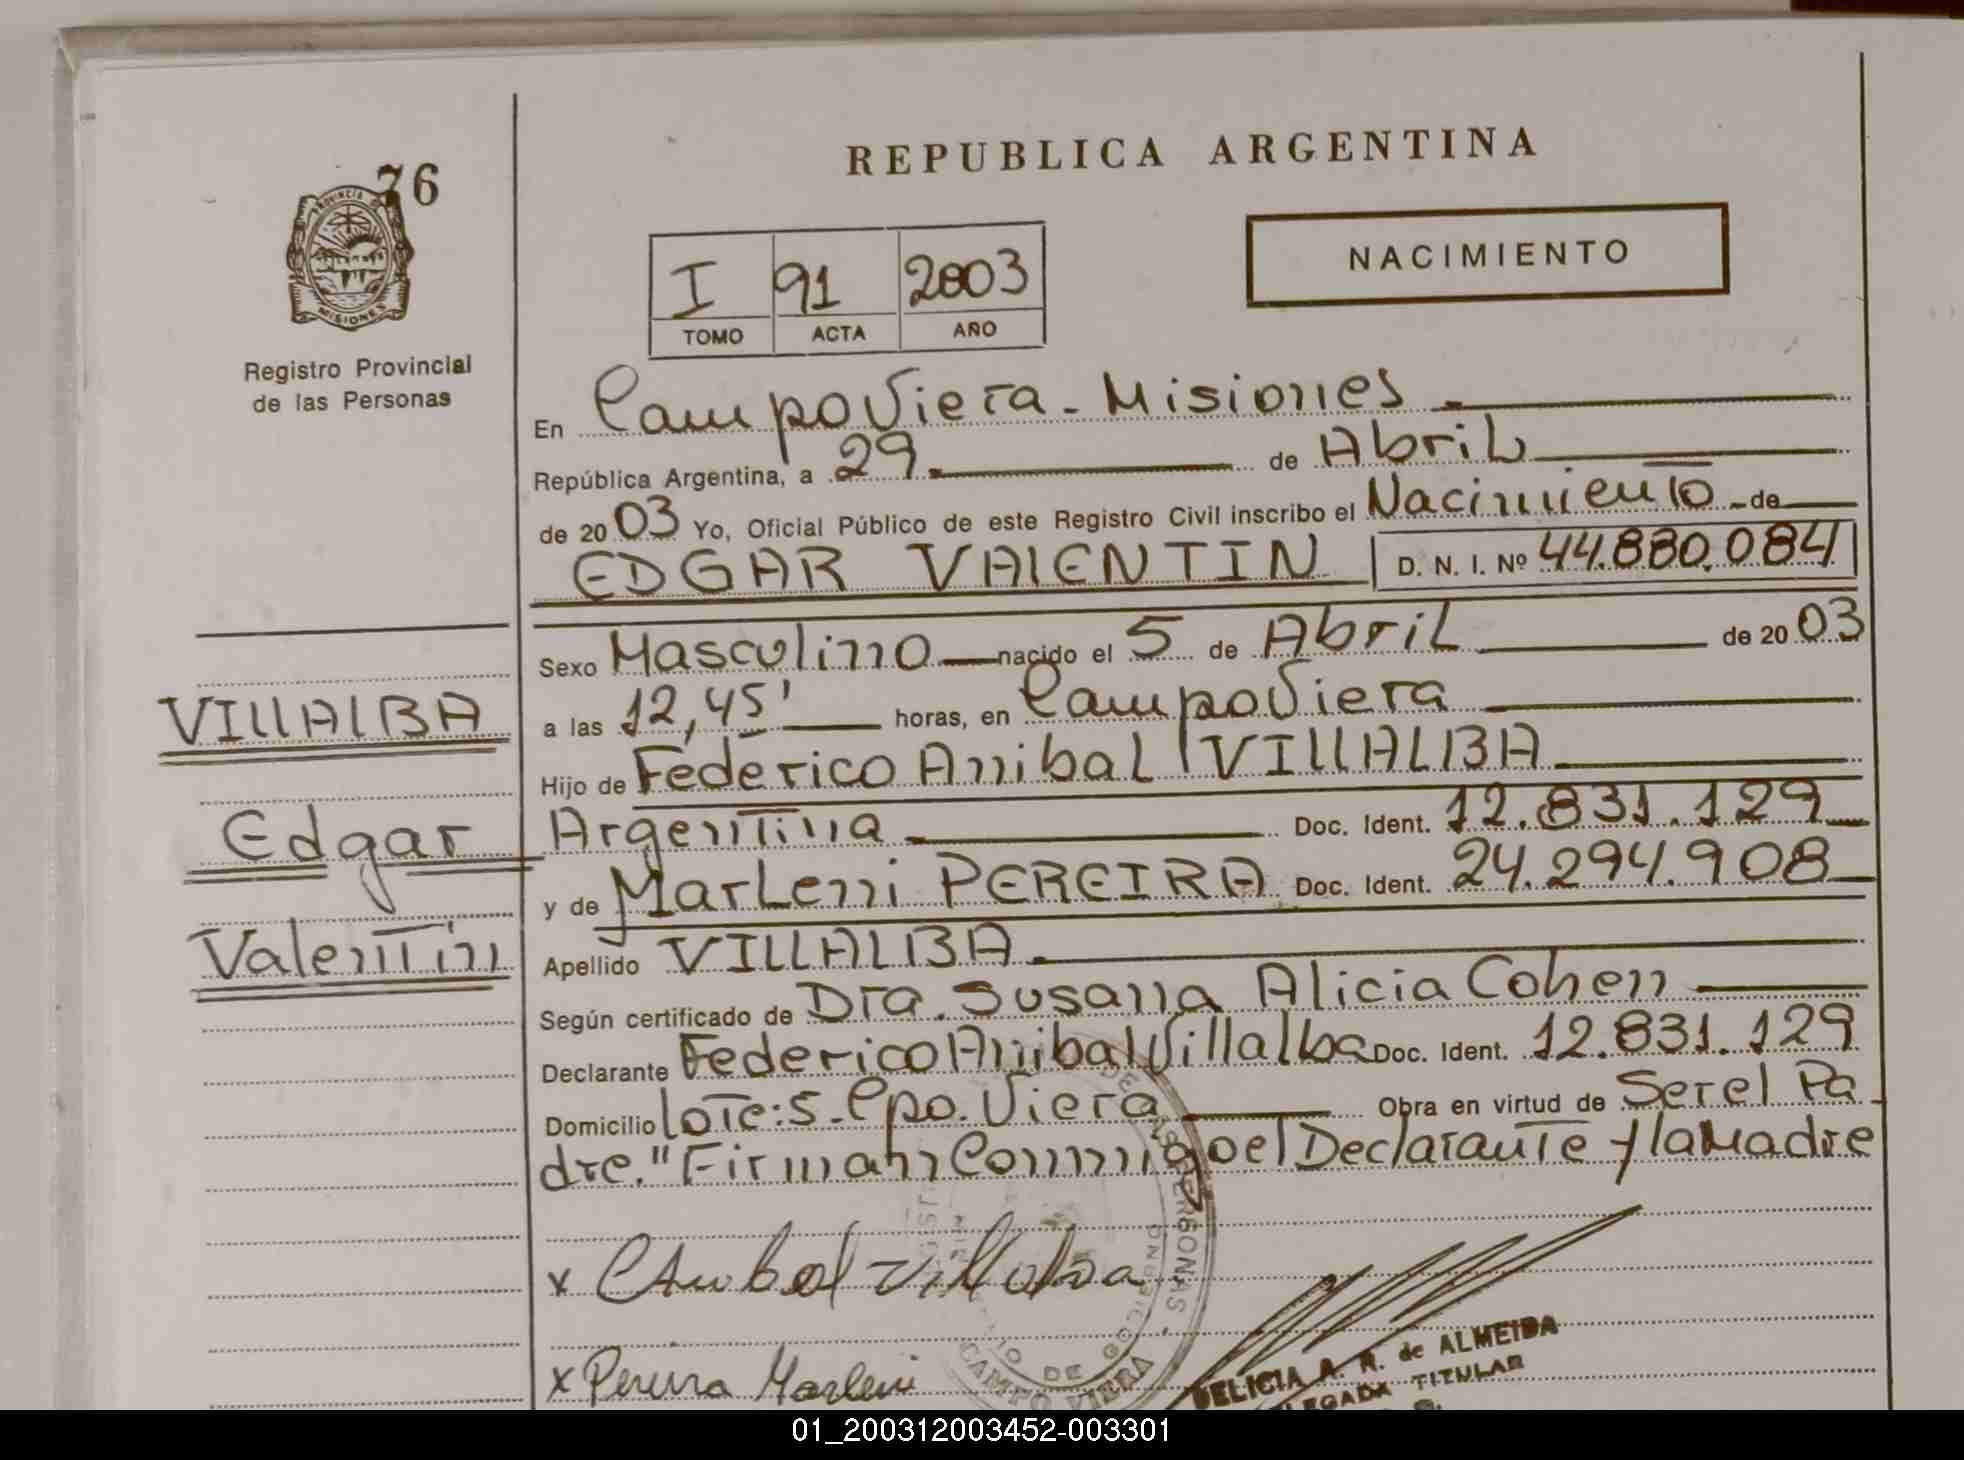 76
PROVINCIA DE
MISIONES
Registro Provincial
de las Personas
VILLALBA
Edgar
Valentin
REPUBLICA ARGENTINA
I 91 2003
TOMO ACTA AÑO
NACIMIENTO
En Campo Viera - Misiones
República Argentina, a 29 de Abril
de 2003 Yo, Oficial Público de este Registro Civil inscribo el Nacimiento de
EDGAR VALENTIN D. N. I. Nº 44.880.084
Sexo Masculino nacido el 5 de Abril de 2003
a las 12,45' horas, en Campo Viera
Hijo de Federico Anibal VILLALBA
Argentina Doc. Ident. 12.831.129
y de Marleni PEREIRA Doc. Ident. 24.294.908
Apellido VILLALBA
Según certificado de Dra. Susana Alicia Cohen
Declarante Federico Anibal Villalba Doc. Ident. 12.831.129
Domicilio lote: 5. Cpo. Viera Obra en virtud de Ser el Pa
dre." Firman Conmigo el Declarante y la Madre
x Anibal Villalba
x Pereira Marleni
DE LAS PERSONAS
CAMPO VIERA
DELICIA A. R. de ALMEIDA
DELEGADA TITULAR
01_200312003452-003301